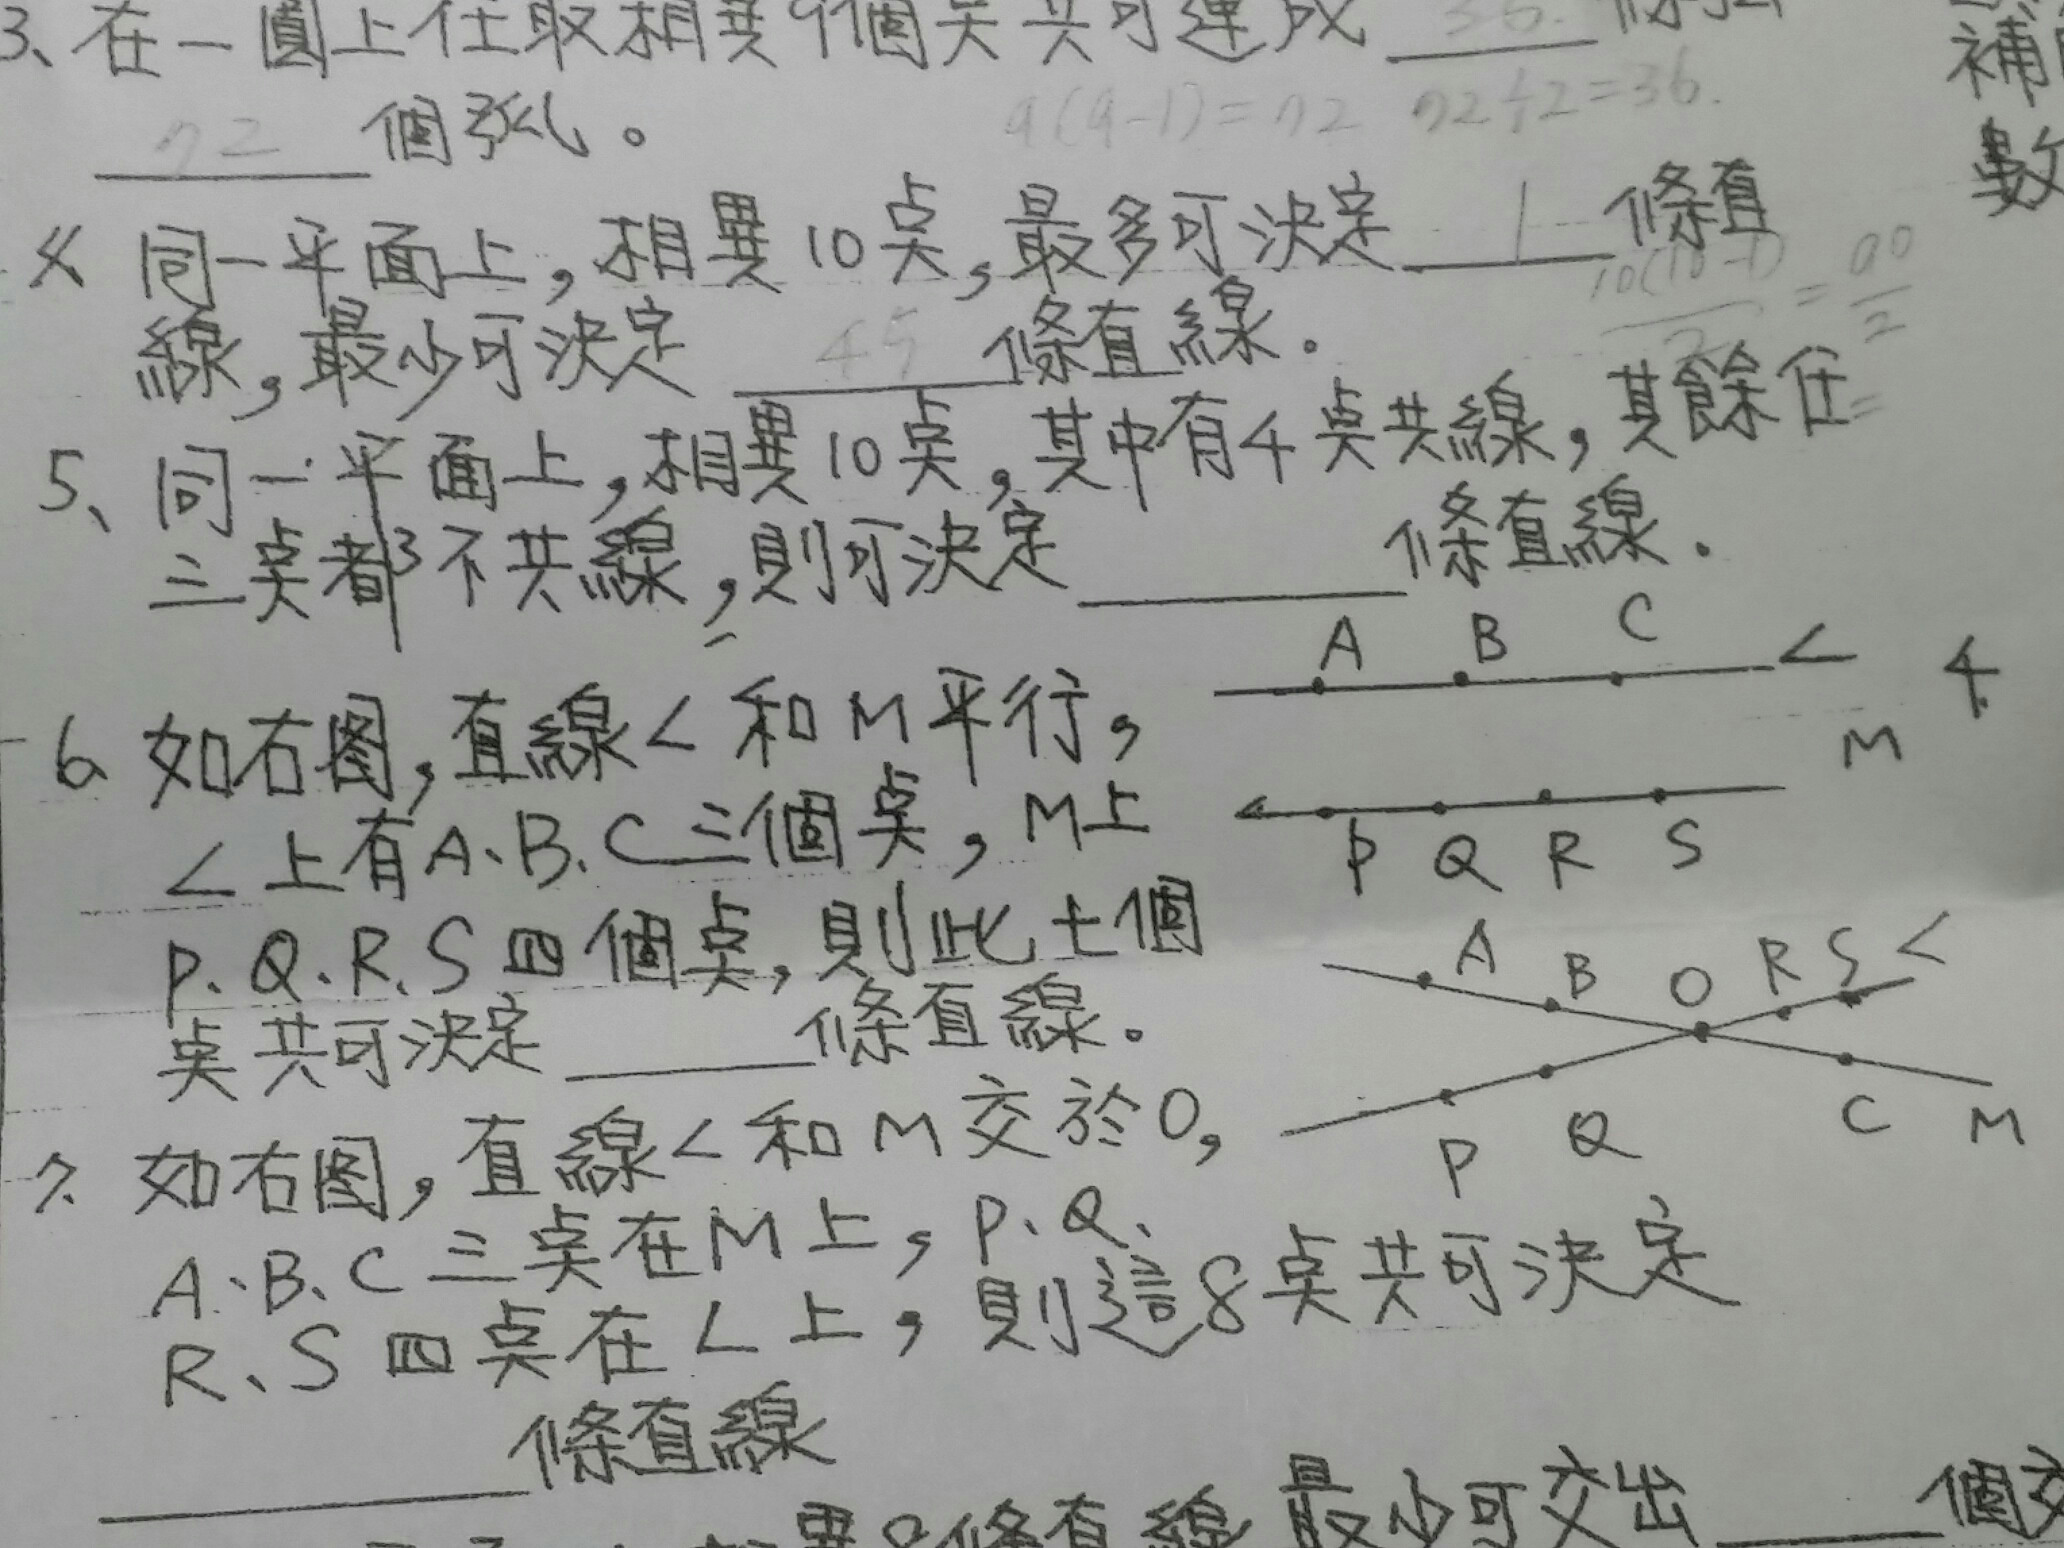 3、在一圓上任取相異9個点共可連成 36.
72 個弧。
9(9-1)=72 72÷2=36.
補
數
4. 同一平面上，相異10点，最多可決定 1 條直
線，最少可決定 45 條直線.
10(10-1)/2 = 90/2
=
5、同一平面上，相異10点，其中有4点共線，其餘任
三点都不共線，則可決定 條直線.
A B C L
4
M
P Q R S
6 如右图，直線L和M平行，
L上有A、B、C三個点，M上
P、Q、R、S四個点，則此七個
点共可決定 條直線。
A B O R S L
P Q C M
7. 如右图，直線L和M交於O，
A、B、C三点在M上，P、Q、
R、S四点在L上，則這8点共可決定
條直線
條直線最少可交出 個交